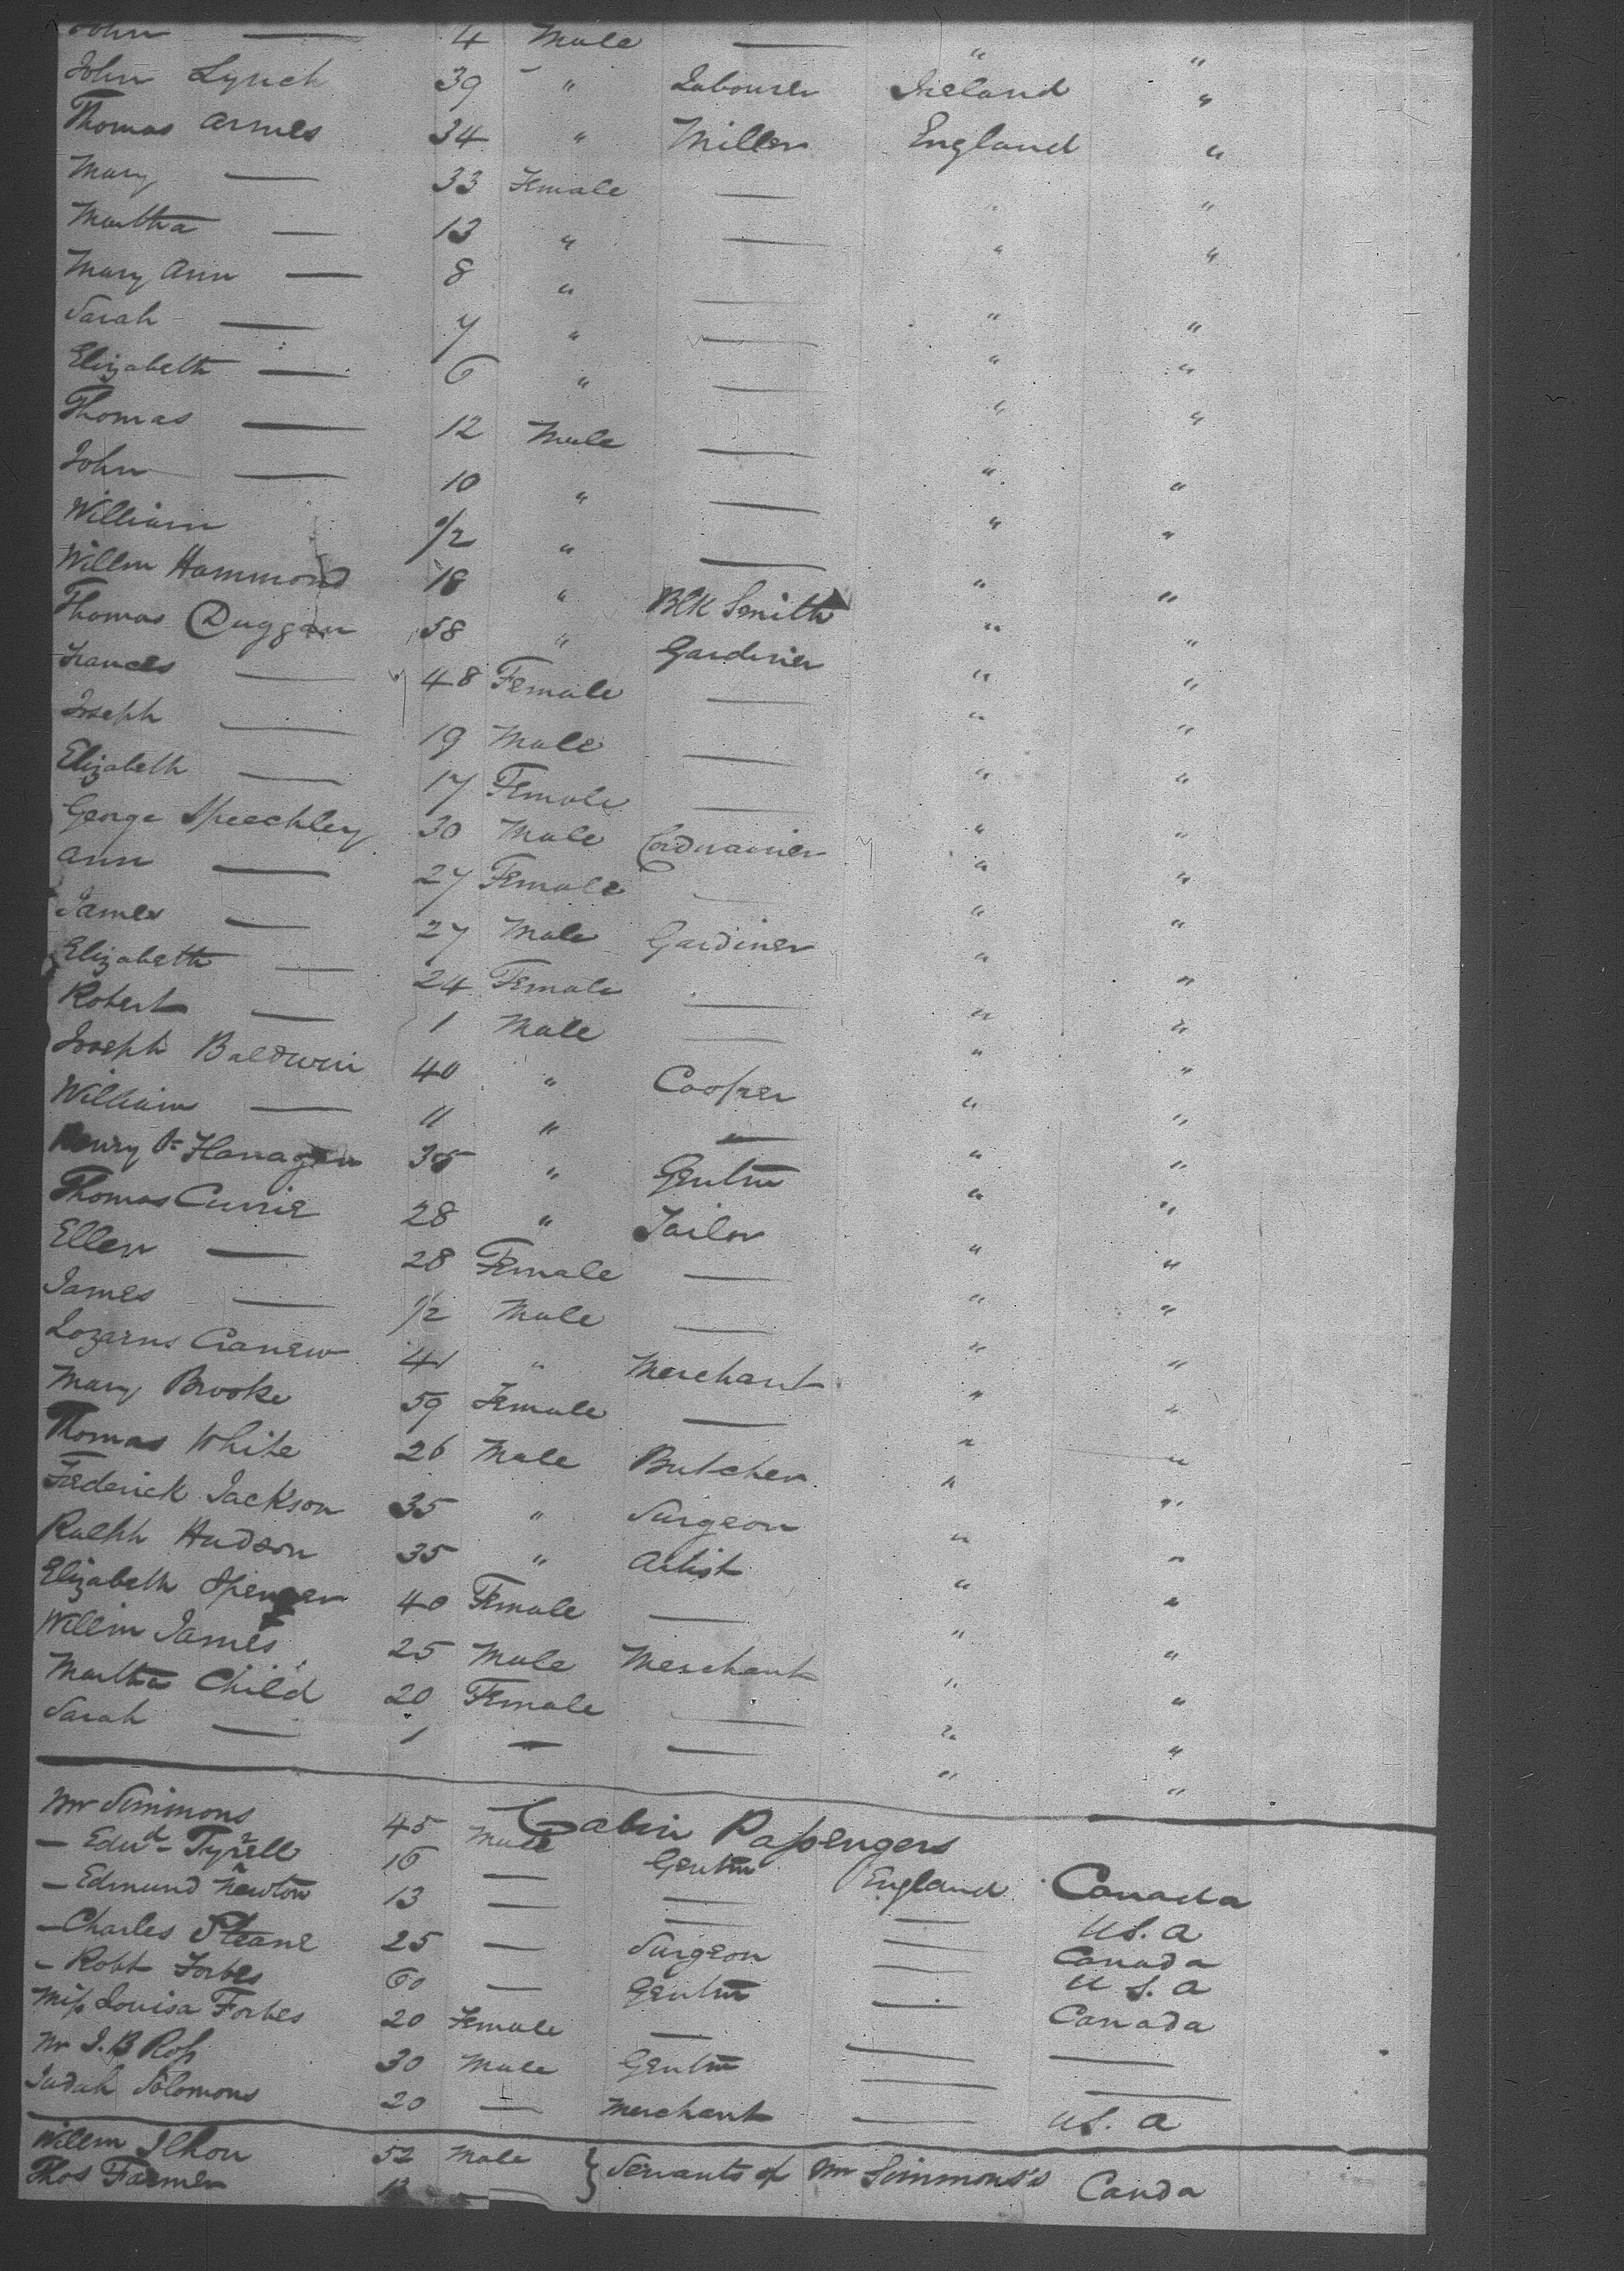 John — 4 Male — " "
John Lynch 39 " Labourer Ireland "
Thomas Armes 34 " Miller England "
Mary — 33 Female — " "
Martha — 13 " — " "
Mary Ann — 8 " — " "
Sarah — 7 " — " "
Elizabeth — 6 " — " "
Thomas — 12 Male — " "
John — 10 " — " "
William 1/2 " — " "
Willm Hammond 18 " Blk Smith " "
Thomas Duggan 58 " Gardiner " "
Frances — 48 Female — " "
Joseph — 19 Male — " "
Elizabeth — 17 Female — " "
George Speechley 30 Male Cordwainer " "
Ann — 27 Female — " "
James — 27 Male Gardiner " "
Elizabeth — 24 Female — " "
Robert — 1 Male — " "
Joseph Baldwin 40 " Cooper " "
William — 11 " — " "
Henry O= Flanagan 35 " Gentm " "
Thomas Currie 28 " Tailor " "
Ellen — 28 Female — " "
James — 1/2 Male — " "
41 " Merchant " "
Mary Brooke 59 Female — " "
Thomas White 26 Male Butcher " "
Frederick Jackson 35 " Surgeon " "
Ralph Hudson 35 " Artist " "
Elizabeth Spencer 40 Female — " "
Willm James 25 Male Merchant " "
Martha Child 20 Female — " "
Sarah — 1 — — " "
Cabin Passengers
Mr Simmons 45 Male Gentm England Canada
— Edwd Tyrrell 16 — — — U S. A
— Edmund Newton 13 — — — Canada
— Charles Steane 25 — Surgeon — U S. A
— Robt Forbes 60 — Gentm — Canada
Miss Louisa Forbes 20 Female — — —
Mr J. B Ross 30 Male Gentm — —
Judah Solomons 20 — Merchant — U S. A
Willm 52 Male } Servants of Mr Simmons's Canda
Thos Farmer